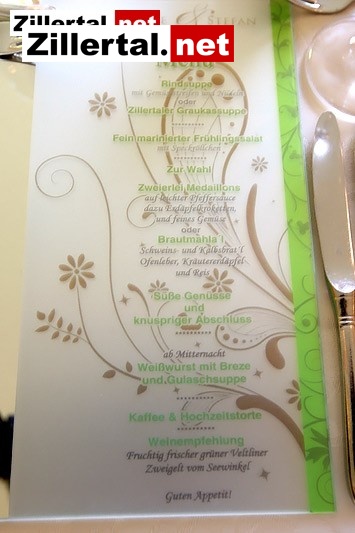 Zillertal.net
Zillertal.net
& STEFAN
Menü
Rindsuppe
mit Gemüsestreifen und Nudeln
oder
Zillertaler Graukassuppe
----------
Fein marinierter Frühlingssalat
mit Speckpölichen
----------
Zur Wahl
Zweierlei Medaillons
auf leichter Pfeffersauce
dazu Erdäpfelkroketten
und feines Gemüse
oder
Brautmahla i
Schweins- und Kalbsbrat'l
Ofenleber, Kräutererdäpfel
und Reis
Süße Genüsse
und
knuspriger Abschluss
----------
ab Mitternacht
Weißwurst mit Breze
und Gulaschsuppe
----------
Kaffee & Hochzeitstorte
----------
Weinempfehlung
Fruchtig frischer grüner Veltliner
Zweigelt vom Seewinkel
Guten Appetit!